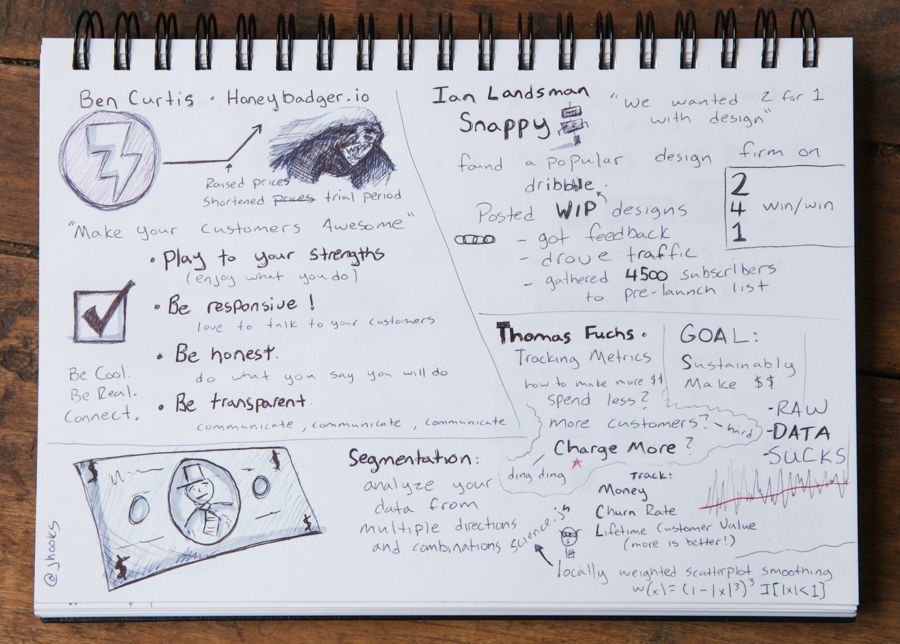 Ben Curtis · Honeybadger.io
Raised prices
Shortened prices trial period
"Make your customers Awesome"
• Play to your strengths
(enjoy what you do)
• Be responsive!
love to talk to your customers
• Be honest.
do what you say you will do
• Be transparent
communicate, communicate, communicate
Be Cool.
Be Real.
Connect.
Ian Landsman
Snappy
"We wanted 2 for 1
with design"
found a popular design firm on
dribbble.
Posted WIP designs
- got feedback
- drove traffic
- gathered 4500 subscribers
to pre-launch list
2
4 win/win
1
Thomas Fuchs ·
Tracking Metrics
how to make more $$
spend less?
more customers? - hard
Charge More?
ding ding
GOAL:
Sustainably
Make $$
- RAW
- DATA
- SUCKS
Track:
Money
Churn Rate
Lifetime Customer Value
(more is better!)
Segmentation:
analyze your
data from
multiple directions
and combinations
science.js
locally weighted scatterplot smoothing
w(x) = (1-|x|³)³ I[|x|<1]
$ $
$ $
@jhooks